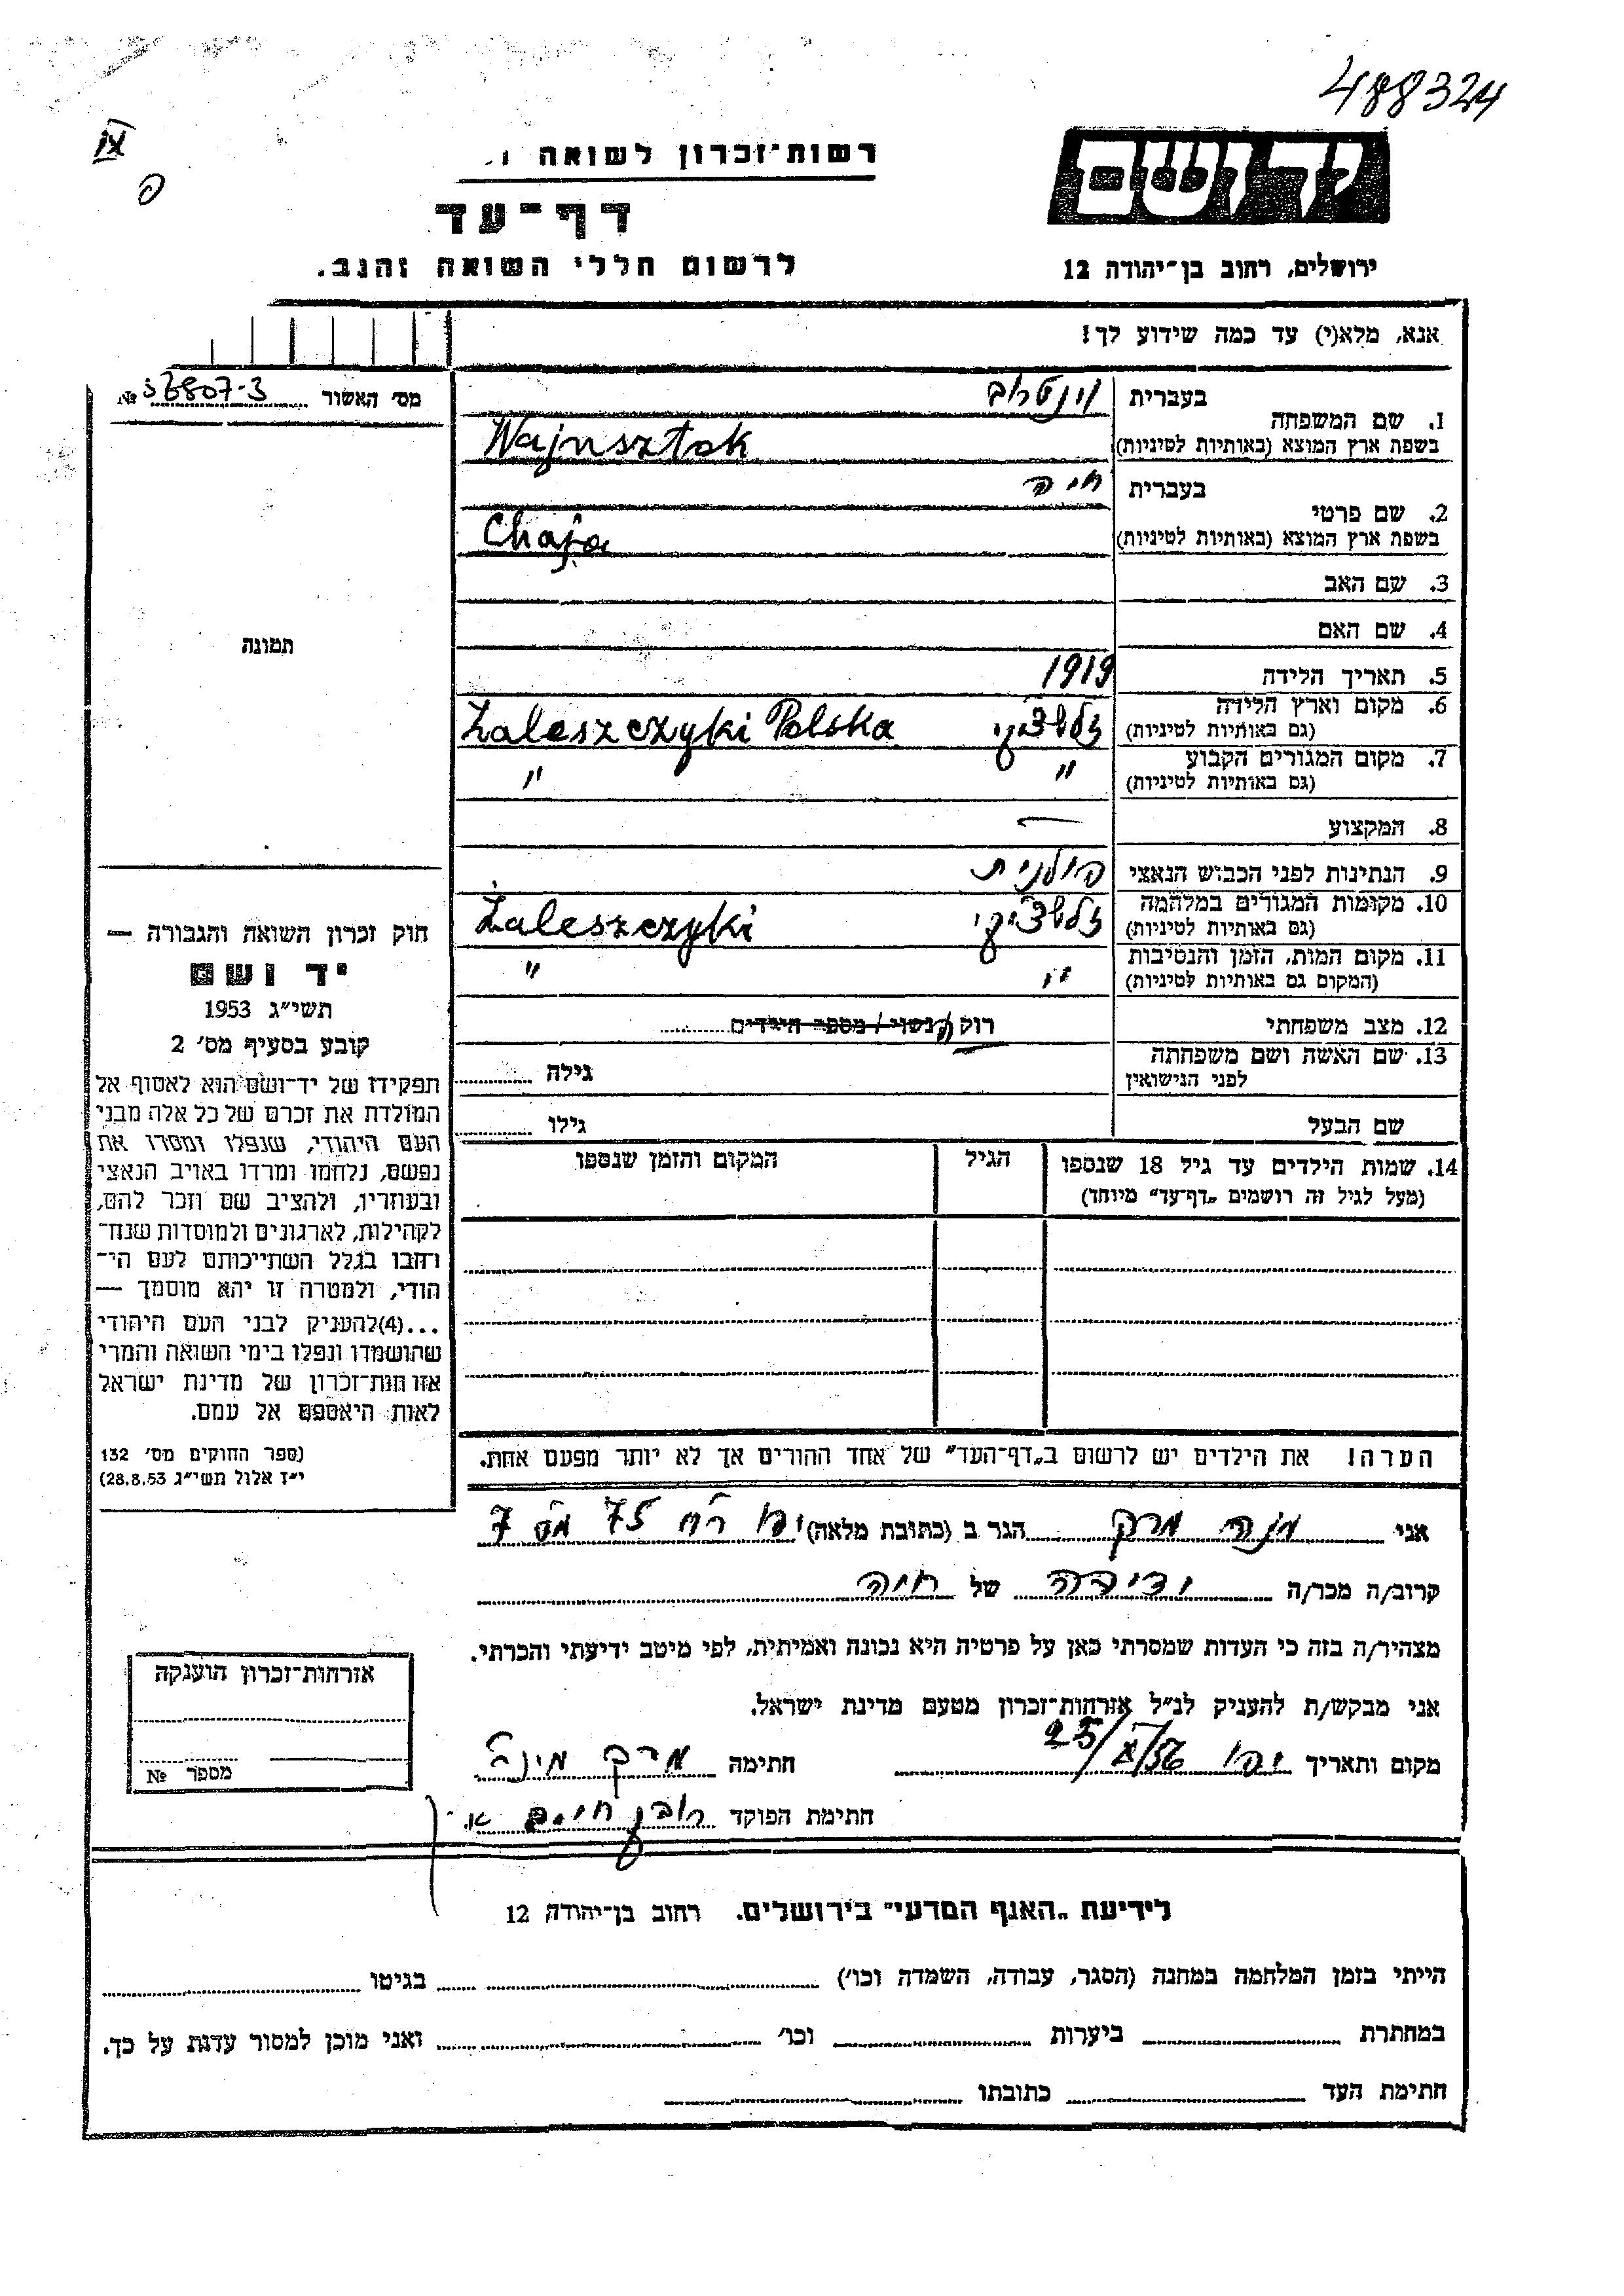 488324
IX
פ
רשות־זכרון לשואה ו
יד ושם
דף־עד
לרשום חללי השואה והגב.
ירושלים, רחוב בן־יהודה 12
אנא, מלא(י) עד כמה שידוע לך!
מס׳ האשור №
1. שם המשפחה
בעברית
בשפת ארץ המוצא (באותיות לטיניות) Wajnsztok
2. שם פרטי
בעברית חיה
בשפת ארץ המוצא (באותיות לטיניות) Chaja
3. שם האב
4. שם האם
תמונה
5. תאריך הלידה 1919
6. מקום וארץ הלידה
(גם באותיות לטיניות) Zaleszczyki Polska
7. מקום המגורים הקבוע
(גם באותיות לטיניות) " "
8. המקצוע —
9. הנתינות לפני הכבוש הנאצי פולנית
10. מקומות המגורים במלחמה
(גם באותיות לטיניות) Zaleszczyki
11. מקום המות, הזמן והנסיבות
(המקום גם באותיות לטיניות) " "
12. מצב משפחתי רווק/נשוי/מספר הילדים
13. שם האשה ושם משפחתה
לפני הנישואין גילה
שם הבעל גילו
14. שמות הילדים עד גיל 18 שנספו הגיל המקום והזמן שנספו
(מעל לגיל זה רושמים „דף־עד” מיוחד)
חוק זכרון השואה והגבורה —
יד ושם
תשי״ג 1953
קובע בסעיף מס׳ 2
תפקידו של יד־ושם הוא לאסוף אל
המולדת את זכרם של כל אלה מבני
העם היהודי, שנפלו ומסרו את
נפשם, נלחמו ומרדו באויב הנאצי
ובעוזריו, ולהציב שם וזכר להם,
לקהילות, לארגונים ולמוסדות שנח־
רחבו בגלל השתייכותם לעם הי־
הודי, ולמטרה זו יהא מוסמך —
...(4)להעניק לבני העם היהודי
שהושמדו ונפלו בימי השואה והמרי
אזרחות־זכרון של מדינת ישראל
לאות היאספם אל עמם.
(ספר החוקים מס׳ 132
י״ז אלול תשי״ג 28.8.53)
הערה! את הילדים יש לרשום ב„דף־העד” של אחד ההורים אך לא יותר מפעם אחת.
אני הגר ב (כתובת מלאה) יפו רח 75 מס 7
קרוב/ה מכר/ה ידידה של חיה
מצהיר/ה בזה כי העדות שמסרתי כאן על פרטיה היא נכונה ואמיתית, לפי מיטב ידיעתי והכרתי.
אני מבקש/ת להעניק לנ״ל אזרחות־זכרון מטעם מדינת ישראל.
מקום ותאריך יפו 25/X/56 חתימה
חתימת הפוקד
אזרחות־זכרון הוענקה
מספר №
לידיעת „האגף המדעי” בירושלים. רחוב בן־יהודה 12
הייתי בזמן המלחמה במחנה (הסגר, עבודה, השמדה וכו׳) בגיטו
במחתרת ביערות וכו׳ ואני מוכן למסור עדות על כך.
חתימת העד כתובתו